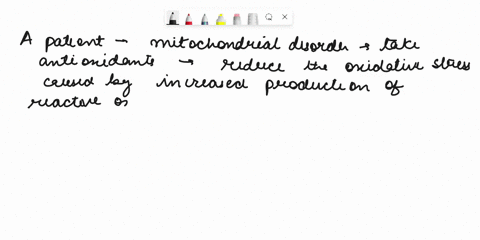 A patient – mitochondrial disorder → take
antioxidants → reduce the oxidative stress
caused by increased production of
reactive o